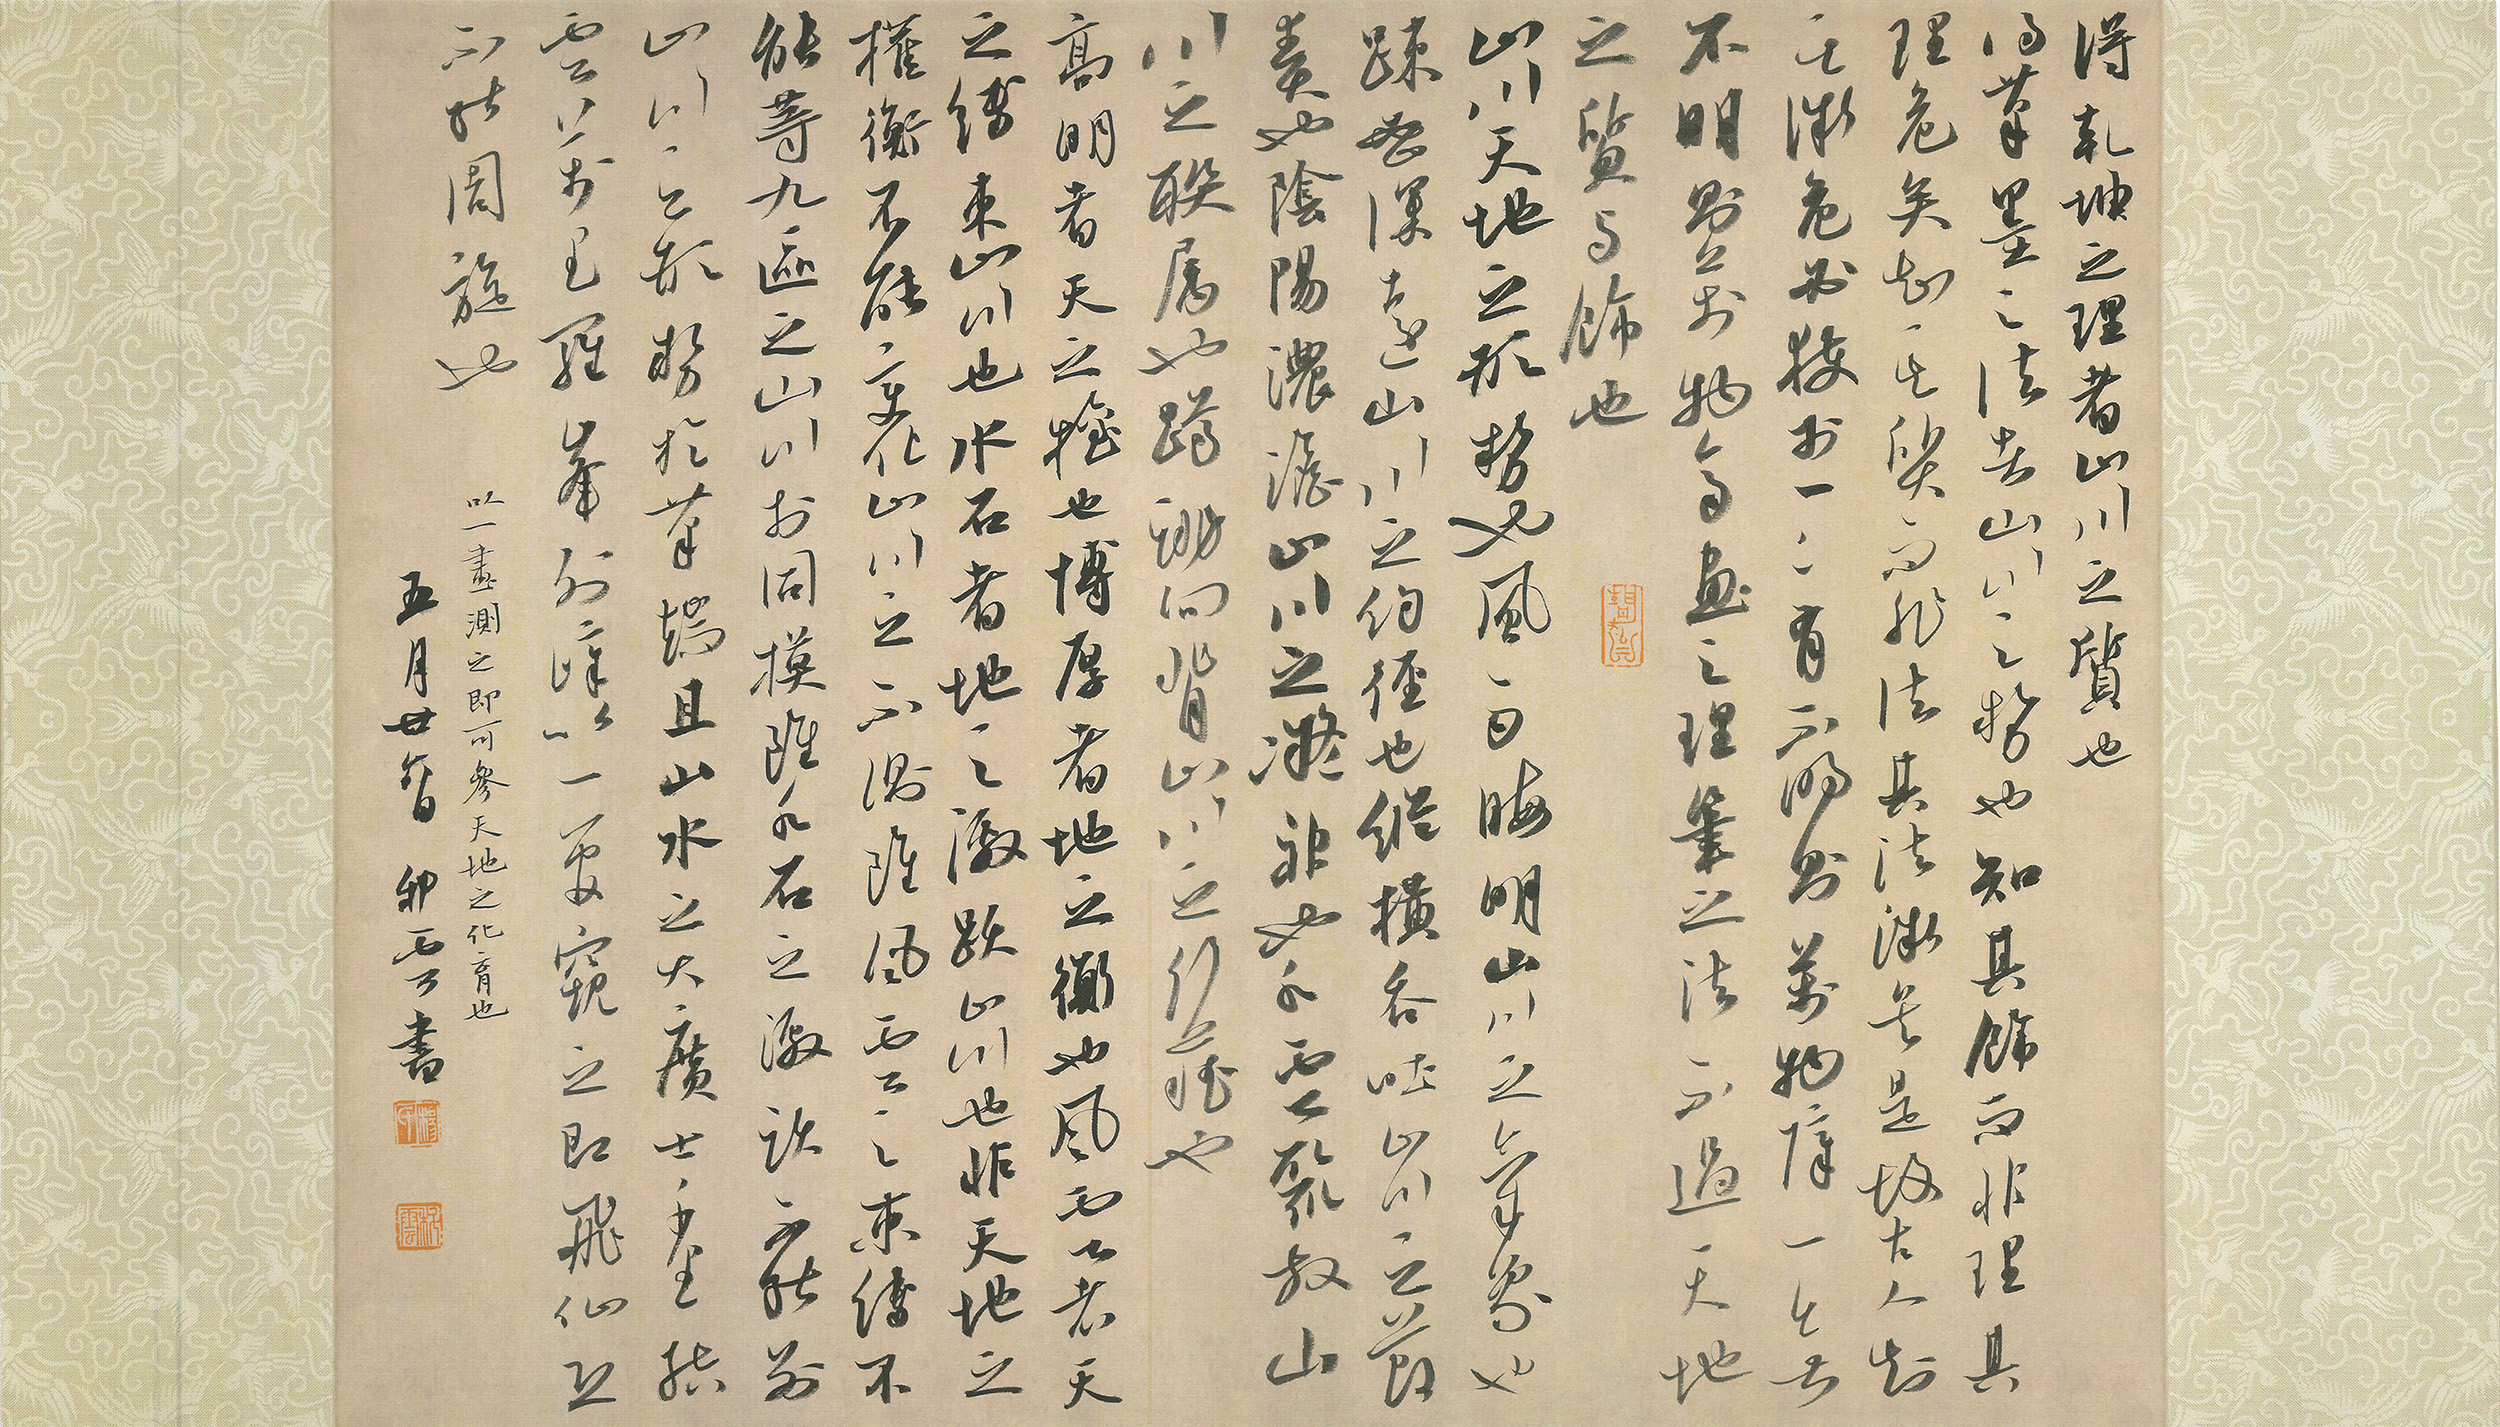 得乾坤之理者山川之質也
得筆墨之法者山川之勢也知其飾而非理其
理危矣知其質而非法其法微矣是故古人知
其微危必獲於一一有不明則萬物障一無
不明則萬物齊畫之理筆之法不過天地
之質与飾也
山川天地之形勢也風雨晦明山川之氣象也
踈密深遠山川之約徑也縱橫吞吐山川之節
奏也陰陽濃澹山川之凝神也水雲聚散山
川之聯屬也蹲跳向背山川之行藏也
高明者天之權也博厚者地之衡也風雲者天
之縛束山川也水石者地之激跃山川也非天地之
權衡不能變化山川之不測雖風雲之束縛不
能等九區之山川於同模雖水石之激跃不能別
山川之形勢於筆端且山水之大廣土千里結
雲萬里羅峯列嶂以一管窺之即飛仙恐
不能周旋也
以一畫測之即可參天地之化育也
五月廿 卯雲書